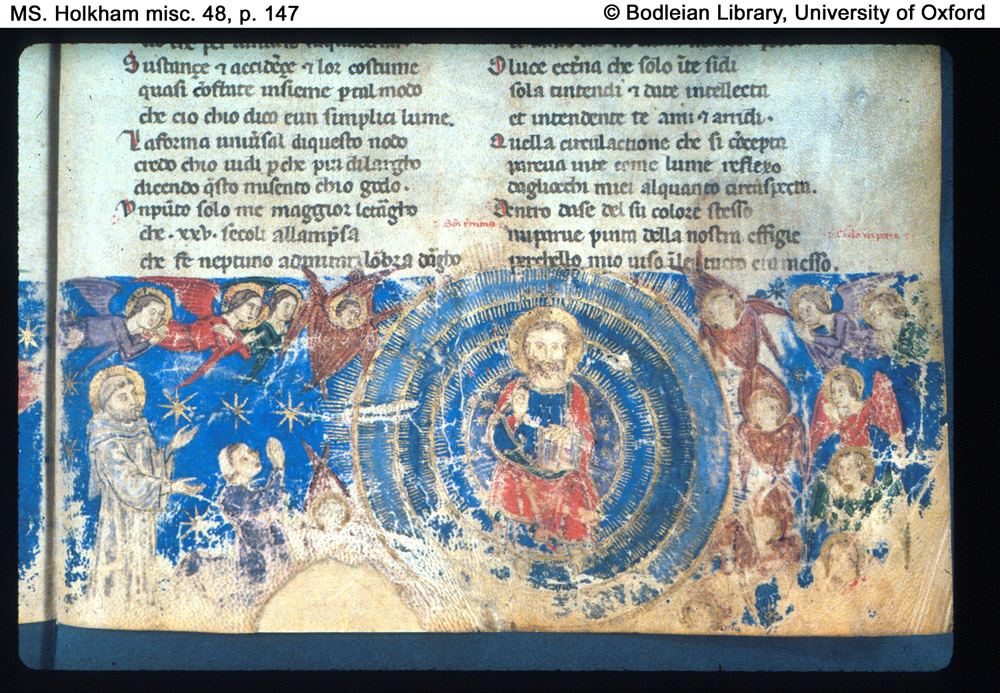 MS. Holkham misc. 48, p. 147
© Bodleian Library, University of Oxford
Sustançe ⁊ accidẽçe ⁊ lor costume
quasi cõflate insieme p tal modo
che cio chio dico e un simplici lume.
La forma uniũsal di questo nodo
credo chio uidi p che piu di largho
dicendo q̃sto misento chio godo.
Vn pũto solo me maggior letargho
che .xxv. secoli
che fe neptuno admirar lõbra dargho
O luce etterna che solo ĩte sidi
sola tintendi ⁊ date intellecta
et intendente te ami ⁊ arridi.
Quella circulactione che si cõcepta
pareua inte come lume reflexo
dagliocchi miei alquanto circũspecta.
Dentro dase del su colore stesso
mi parue pinta della nostra effigie
perchello mio uiso ĩ lei tucto era messo.